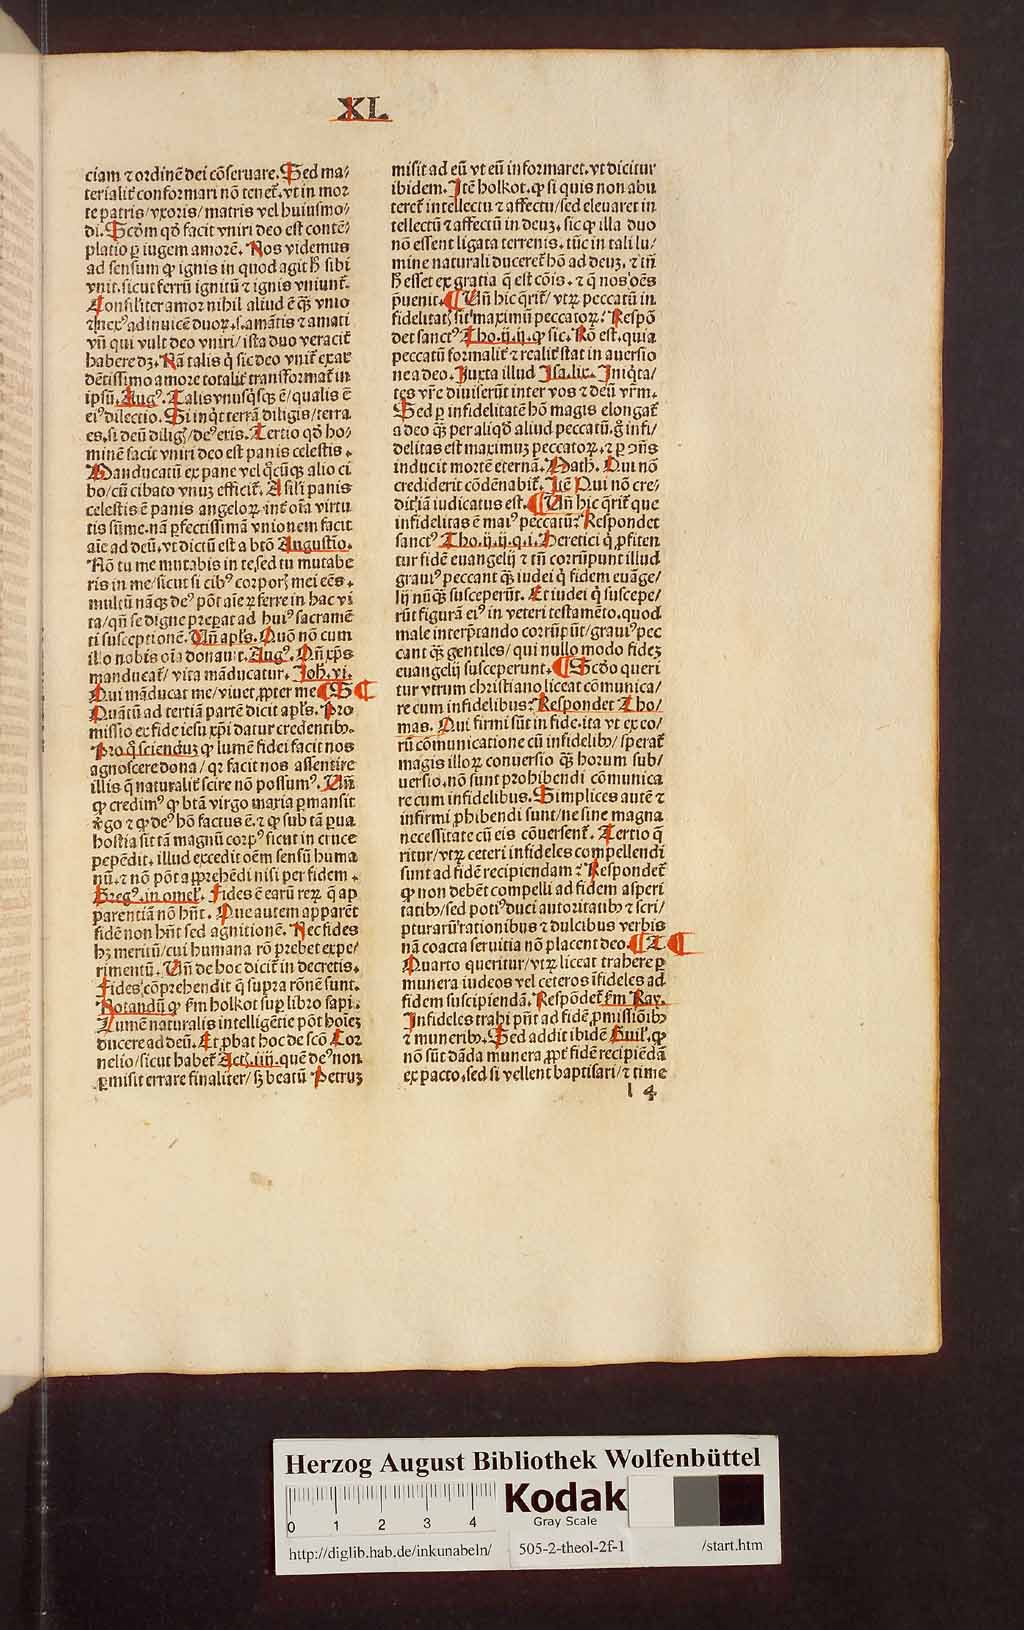 XL
ciam ⁊ ordinē dei cōseruare. Sed ma/
terialit̄ conformari nō tenet̄. vt in mor
te patris/ vxoris/ matris vel huiusmo/
di. Scd̄m qd̄ facit vniri deo est contē/
platio ꝑ iugem amorē. Nos videmus
ad sensum ꝙ ignis in quod agit h̄ sibi
vnit. sicut ferrū ignitū ⁊ ignis vniunt̄.
Consiliter amor nihil aliud ē qꝫ vnio
⁊ nexꝰ adinuicē duoꝝ. s. amātis ⁊ amati
vn̄ qui vult deo vniri/ ista duo veracit̄
habere dꝫ. Nā talis q̇ sic deo vnit̄ ex ar
dētissimo amore totalit̄ transformat̄ in
ipsū. Augꝰ. Talis vnusq̇sqꝫ ē/ qualis ē
eiꝰ dilectio. Si inq̇t terrā diligis/ terra
es. si deū diligꝭ/ deꝰ eris. Tertio qd̄ ho/
minē facit vniri deo est panis celestis.
Manducatū ex pane vel q̇cūqꝫ alio ci
bo/ cū cibato vnuꝫ efficit̄. A sil̄i panis
celestis ē panis angeloꝝ. int̄ oīa virtu
tis sūme. nā ꝑfectissimā vnionem facit
aīe ad deū. vt dictū est a btō Augustīo.
Nō tu me mutabis in te. sed tu mutabe
ris in me/ sicut si cibꝰ corporꝭ mei eēs.
multū nāqꝫ deꝰ pōt aīe ꝓferre in hac vi
ta/ qn̄ se digne preꝑat ad huiꝰ sacramē
ti susceptionē. Vn̄ apl̄s. Quō nō cum
illo nobis oīa donauit. Augꝰ. Qn̄ xp̄s
manducat̄/ vita māducatur. Joh. vi.
Qui māducat me/ viuet ꝓpter me ¶ S
Quātū ad tertiā partē dicit apl̄s. Pro
missio ex fide iesu xp̄i datur credentibꝫ.
Pro q̄ scienduꝫ ꝙ lumē fidei facit nos
agnoscere dona/ qꝛ facit nos assentire
illis q̄ naturalit̄ scire nō possumꝰ. Vn̄
ꝙ credimꝰ ꝙ btā virgo maria ꝑmansit
v̇go ⁊ ꝙ deꝰ hō factus ē. ⁊ ꝙ sub tā ꝑua
hostia sit tā magnū corpꝰ sicut in cruce
pepēdit. illud excedit oēm sensū huma
nū. ⁊ nō pōt apprehēdi nisi per fidem.
Gregꝰ. in omel̄. Fides ē earū reꝝ q̄ ap
parentiā nō hn̄t. Que autem apparēt
fidē non hn̄t sed agnitionē. Nec fides
hꝫ meritū/ cui humana rō prebet expe/
rimentū. Vn̄ de hoc dicit̄ in decretis.
Fides cōprehendit q̄ supra rōnē sunt.
Notandū ꝙ ẜm holkot suꝑ libro sapi.
Lumē naturalis intelligētie pōt hoīeꝫ
ducere ad deū. Et ꝓbat hoc de scō Cor
nelio/ sicut habet̄ Act. iiij. quē deꝰ non
ꝑmisit errare finaliter/ sꝫ beatū Petruꝫ
misit ad eū vt eū informaret. vt dicitur
ibidem. Itē holkot. ꝙ si quis non abu
teret̄ intellectu ⁊ affectu/ sed eleuaret in
tellectū ⁊ affectū in deuꝫ. sic ꝙ illa duo
nō essent ligata terrenis. tūc in tali lu/
mine naturali duceret̄ hō ad deuꝫ. ⁊ tn̄
h̄ esset ex gratia q̄ est cōis. ⁊ q̄ nos oēs
p̄uenit. ¶ Vn̄ hic q̄rit̄/ vtꝝ peccatū in
fidelitatꝭ sit maximū peccatoꝝ? Respō
det sanctꝰ Tho. ij. ij. ꝙ sic. Rō est. quia
peccatū formalit̄ ⁊ realit̄ stat in auersio
ne a deo. Juxta illud Isa. lix. Iniq̇ta/
tes vr̄e diuiserūt inter vos ⁊ deū vr̄m.
Sed ꝑ infidelitatē hō magis elongat̄
a deo qꝫ per aliqd̄ aliud peccatū. g̊ infi/
delitas est maximuꝫ peccatoꝝ. ⁊ ꝑ ꝯn̄s
inducit mortē eternā. Math. Qui nō
crediderit cōdēnabit̄. Itē Qui nō cre/
dit/ iā iudicatus est. ¶ Vn̄ hic q̄rit̄ que
infidelitas ē maiꝰ peccatū? Respondet
sanctꝰ Tho. ij. ij. q. i. Heretici q̇ ꝓfiten
tur fidē euangelij ⁊ tn̄ corrūpunt illud
grauiꝰ peccant qꝫ iudei q̇ fidem euāge/
lij nūqꝫ susceperūt. Et iudei q̇ suscepe/
rūt figurā eiꝰ in veteri testamēto. quod
male interp̄tando corrūpūt/ grauiꝰ pec
cant qꝫ gentiles/ qui nullo modo fideꝫ
euangelij susceperunt. ¶ Scd̄o queri
tur vtrum christiano liceat cōmunica/
re cum infidelibus? Respondet Tho/
mas. Qui firmi sūt in fide. ita vt ex eo/
rū cōmunicatione cū infidelibꝫ/ sperat̄
magis illoꝝ conuersio qꝫ horum sub/
uersio. nō sunt prohibendi cōmunica
re cum infidelibus. Simplices autē ⁊
infirmi ꝓhibendi sunt/ ne sine magna
necessitate cū eis cōuersent̄. Tertio q̄
ritur/ vtꝝ ceteri infideles compellendi
sunt ad fidē recipiendam? Respondet̄
ꝙ non debēt compelli ad fidem asperi
tatibꝫ/ sed potiꝰ duci autoritatibꝫ ⁊ scri/
pturarū rationibus ⁊ dulcibus verbis
nā coacta seruitia nō placent deo. ¶ T
Quarto queritur/ vtꝝ liceat trahere ꝑ
munera iudeos vel ceteros īfideles ad
fidem suscipiendā. Respōdet̄ ẜm Ray.
Infideles trahi pn̄t ad fidē ꝓmissiōibꝫ
⁊ muneribꝫ. Sed addit ibidē Guil̄. ꝙ
nō sūt dāda munera ꝓpt̄ fidē recipiēdā
ex pacto. sed si vellent baptisari/ ⁊ time
l 4
Herzog August Bibliothek Wolfenbüttel
0 1 2 3 4
Kodak
Gray Scale
http://diglib.hab.de/inkunabeln/ 505-2-theol-2f-1 /start.htm